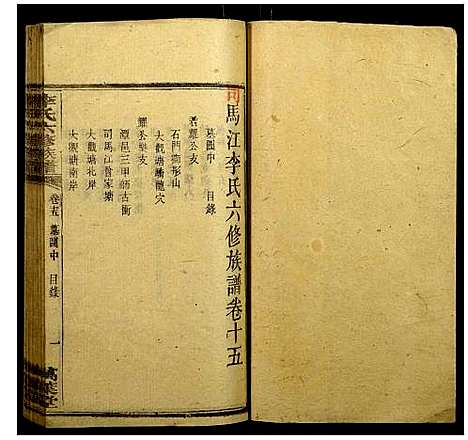 司馬江李氏六修族譜卷十五
墓圖中 目錄
君耀公支
石門獅形山
大觀塘螃蟹穴
耀公柴支
潭邑三甲師古衝
司馬江曾家塘
大觀塘北岸
大觀塘南岸
李氏六修族譜 卷十五 墓圖中 目錄 一